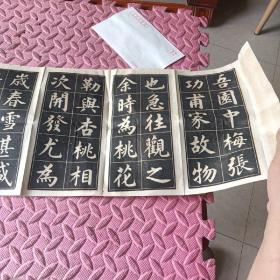 吾園中梅張
功甫家故物
也急往觀之
余時為桃花
勒與杏桃相
次開發尤為
歲春雪甚